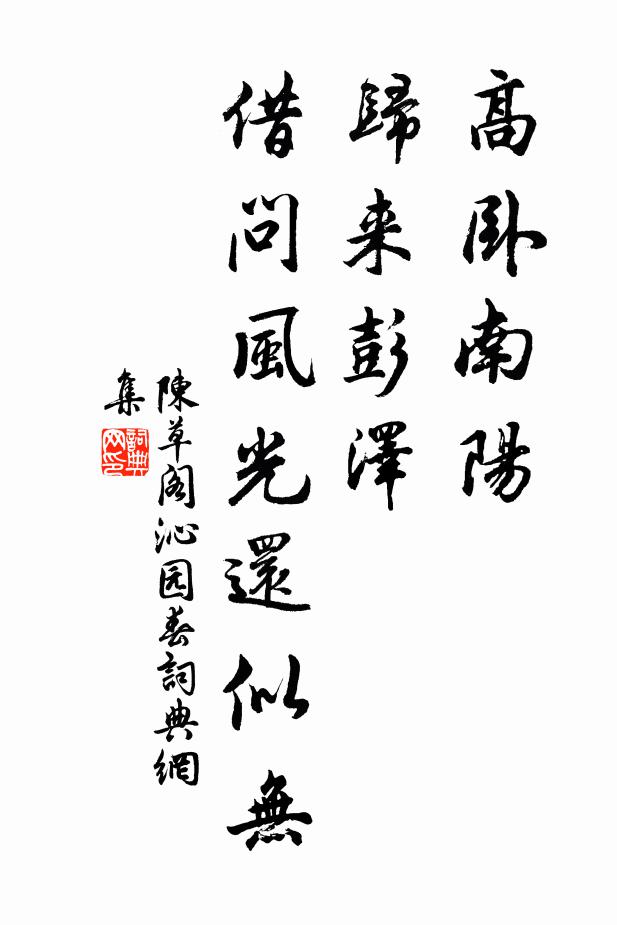 高卧南陽
歸来彭澤
借問風光還似無
陳草阁沁园春詞典網
集
詞典
网印